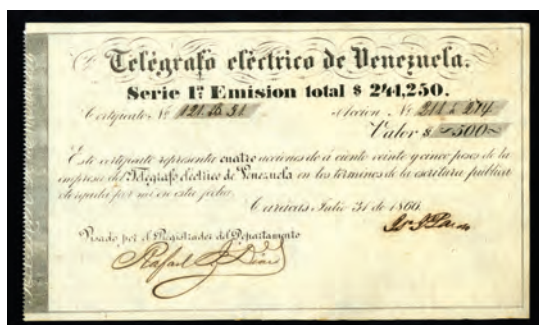 Telégrafo eléctrico de Venezuela.
Serie 1ª Emision total $ 244,250.
Certificato Nº Accion Nº 211 á 214
Valor $ 500
Este certificato representa cuatro acciones de á ciento veinte y cinco pesos de la
empresa del Telégrafo eléctrico de Venezuela en los términos de la escritura pública
otorgada por mi en esta fecha.
Carácas Julio 31 de 1860.
Visado por el Registrador del Departamento
Rafael